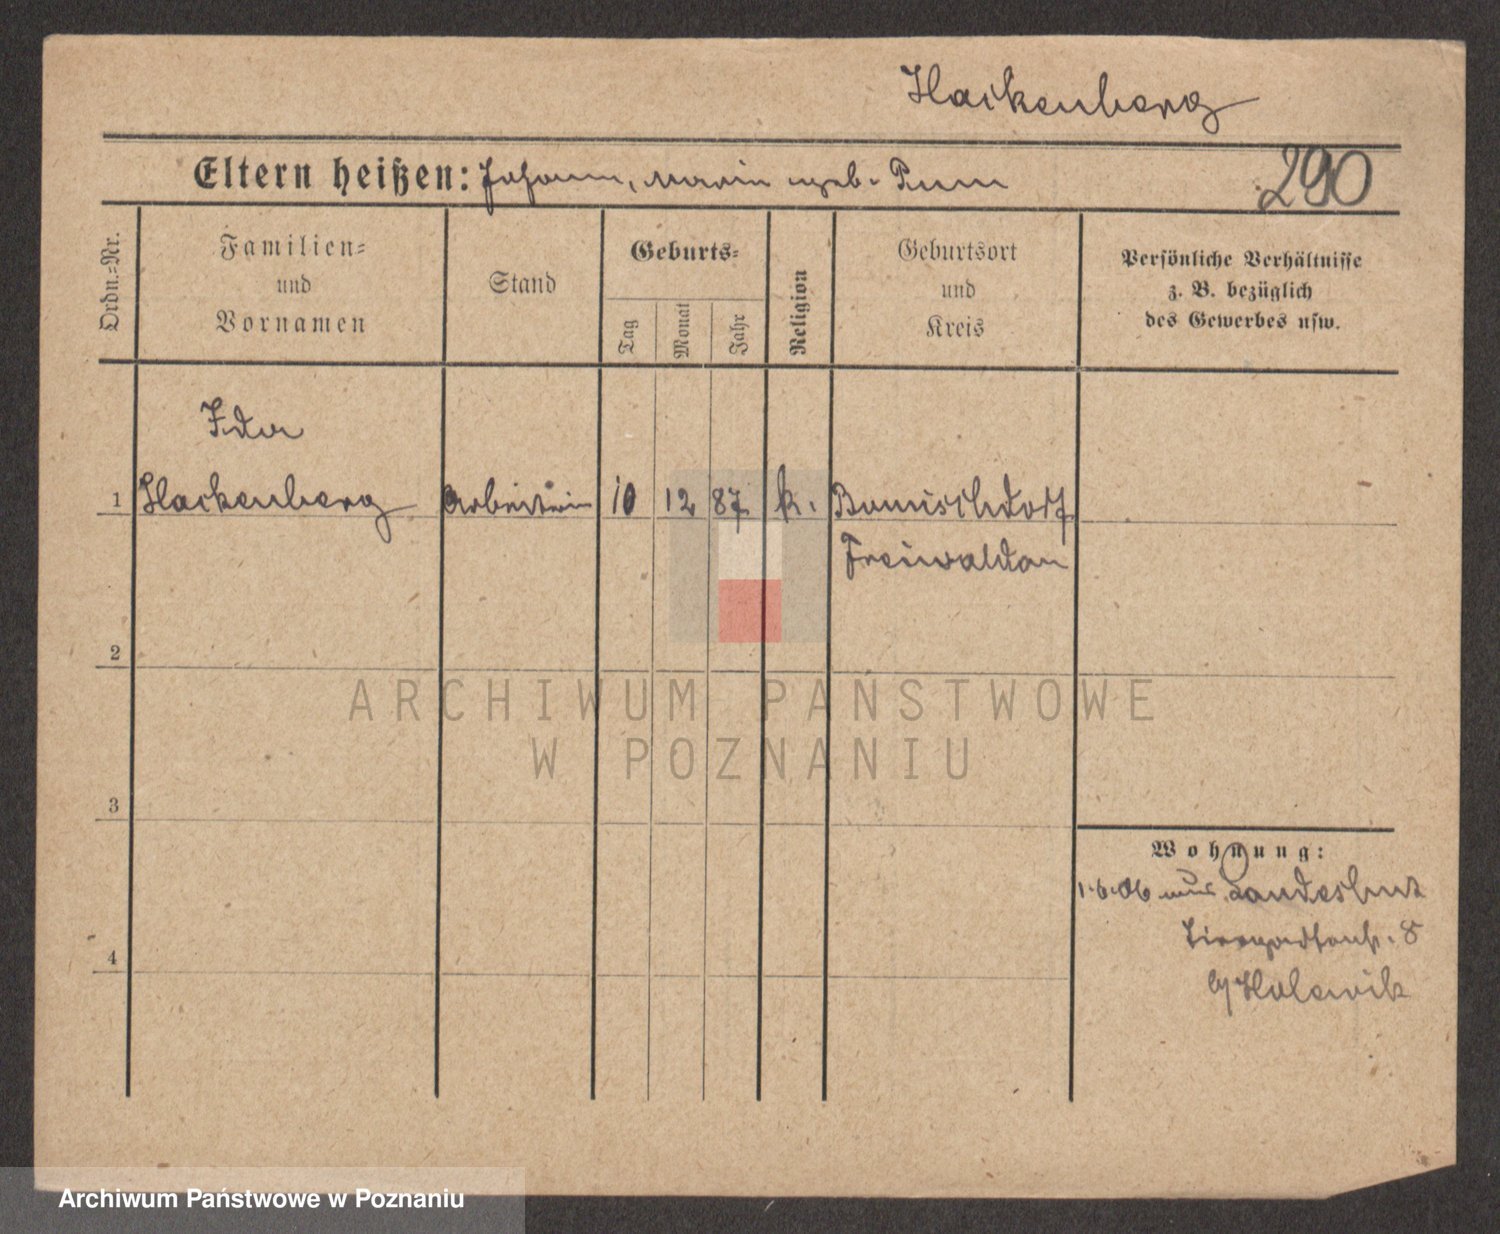 Hackenberg
Eltern heißen: Johann, Maria geb.
290
Ordn.-Nr.
Familien-
und
Vornamen
Stand
Geburts-
Tag
Monat
Jahr
Religion
Geburtsort
und
Kreis
Persönliche Verhältnisse
z. B. bezüglich
des Gewerbes usw.
Ida
1 Hackenberg Arbeiterin 10 12 87 k.
Freiwaldau
2
ARCHIWUM PAŃSTWOWE
W POZNANIU
3
Wohnung:
1.6.06 aus Landeshut
8
4
Archiwum Państwowe w Poznaniu